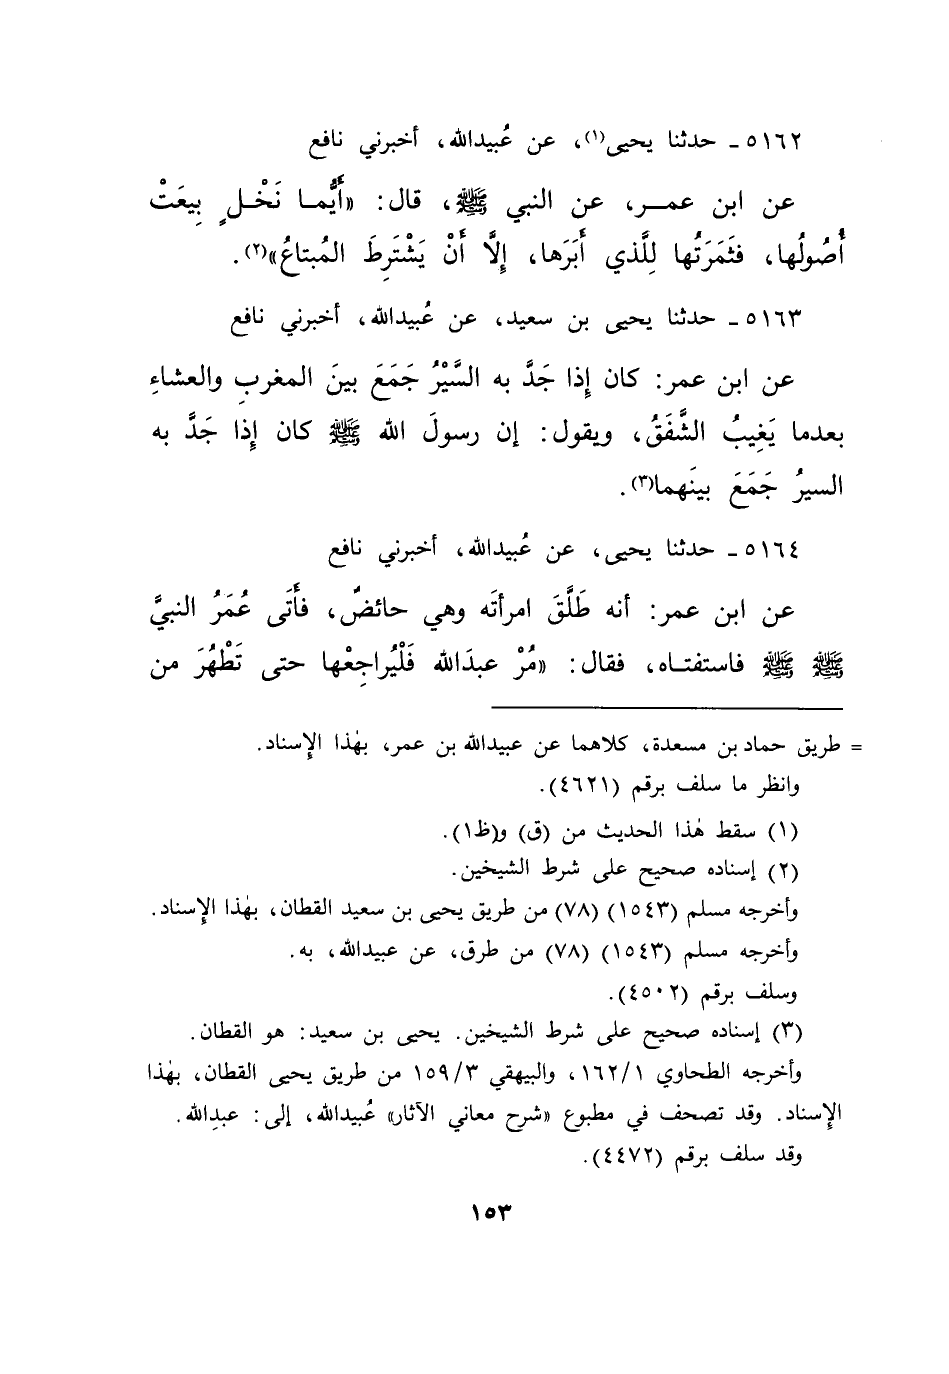 ٥١٦٢ ـ حدثنا يحيى(١)، عن عُبيدالله، أخبرني نافع
عن ابن عمـر، عن النبي ﷺ، قال: «أَيُّمـا نَخْـلٍ بِيعَتْ
أُصُولُها، فثَمَرَتُها لِلَّذي أَبَرَها، إِلَّا أَنْ يَشْتَرِطَ المُبتاعُ»(٢).
٥١٦٣ ـ حدثنا يحيى بن سعيد، عن عُبيدالله، أخبرني نافع
عن ابن عمر: كان إِذا جَدَّ به السَّيْرُ جَمَعَ بينَ المغربِ والعشاءِ
بعدما يَغِيبُ الشَّفَقُ، ويقول: إن رسولَ الله ﷺ كان إِذا جَدَّ به
السيرُ جَمَعَ بينَهما(٣).
٥١٦٤ ـ حدثنا يحيى، عن عُبيدالله، أخبرني نافع
عن ابن عمر: أنه طَلَّقَ امرأتَه وهي حائضٌ، فأَتَى عُمَرُ النبيَّ
ﷺ ﷺ فاستفتـاه، فقال: «مُرْ عبدَالله فَلْيُراجِعْها حتى تَطْهُرَ من
= طريق حماد بن مسعدة، كلاهما عن عبيدالله بن عمر، بهٰذا الإِسناد.
وانظر ما سلف برقم (٤٦٢١).
(١) سقط هٰذا الحديث من (ق) و(ظ١).
(٢) إسناده صحيح على شرط الشيخين.
وأخرجه مسلم (١٥٤٣) (٧٨) من طريق يحيى بن سعيد القطان، بهٰذا الإِسناد.
وأخرجه مسلم (١٥٤٣) (٧٨) من طرق، عن عبيدالله، به.
وسلف برقم (٤٥٠٢).
(٣) إسناده صحيح على شرط الشيخين. يحيى بن سعيد: هو القطان.
وأخرجه الطحاوي ١٦٢/١، والبيهقي ١٥٩/٣ من طريق يحيى القطان، بهٰذا
الإِسناد. وقد تصحف في مطبوع «شرح معاني الآثار» عُبيدالله، إلى: عبدِالله.
وقد سلف برقم (٤٤٧٢).
١٥٣